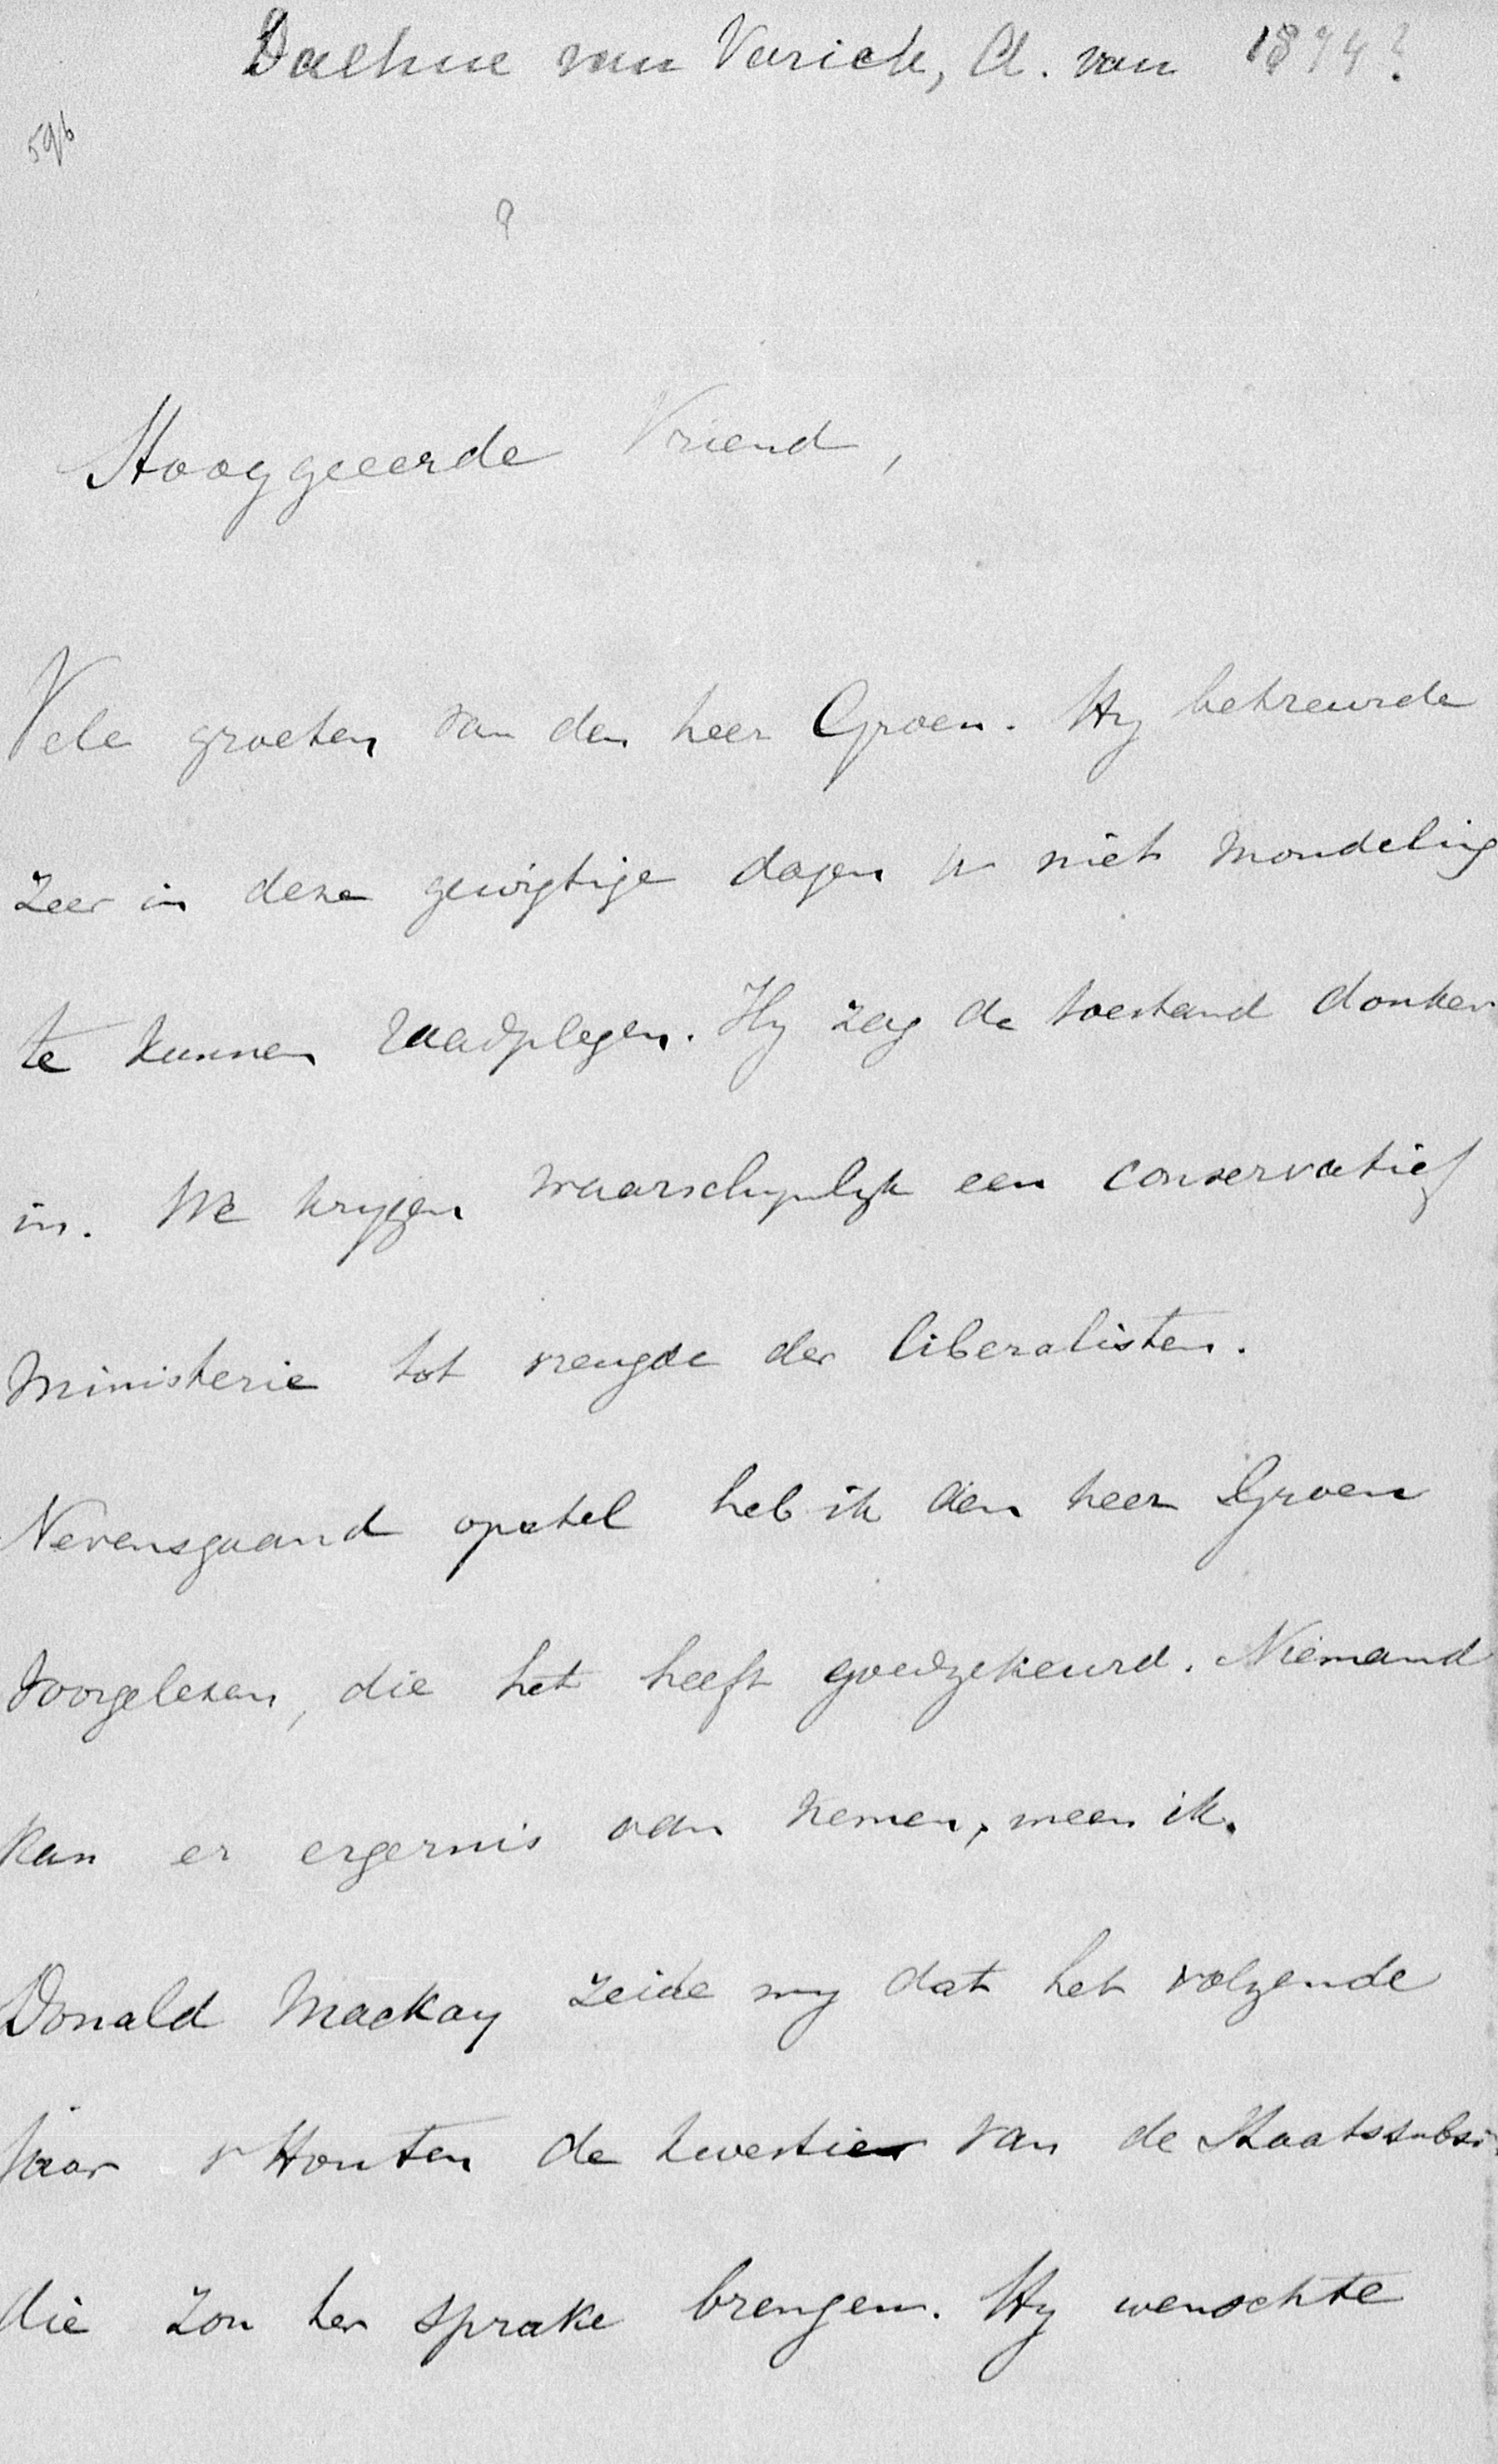 Daehne van Varick, A. van 1874?
596
?
Hooggeeerde Vriend,
Vele groeten van den heer Groen. Hy betreurde
zeer in deze gewigtige dagen u niet mondeling
te kunnen raadplegen. Hy zag de toestand donker
in. We krygen waarschynlyk een conservatief
Ministerie tot vreugde der liberalisten.
Nevensgaand opstel heb ik den heer Groen
voorgelezen, die het heeft goedgekeurd. Niemand
kan er ergernis aan nemen, meen ik.
Donald Mackay zeide my dat het volgende
jaar v Houten de kwestie van de Staatssubsi
die zou ter sprake brengen. Hy wenschte